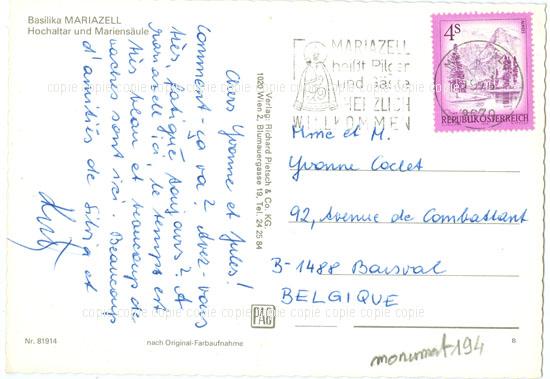 Basilika MARIAZELL
Hochaltar und Mariensäule
Chers Yvonne et Jules!
Comment-ça va? Avez-vous
très fatigué toujours? A
Mariazell ici, le temps est
très beau et beaucoup de
vaches sont ici. Beaucoup
d'amitiés de Silvia et
Kurt
Verlag: Richard Pietsch & Co. KG.
1020 Wien 2, Blumauergasse 19, Tel. 24 25 84
PAG
MARIAZELL
heißt Pilger
und Gäste
HERZLICH
WILLKOMMEN
4S
REPUBLIK ÖSTERREICH
Mme et M.
Yvonne Coclet
92, Avenue de Combattant
B-1488 Bousval
BELGIQUE
Nr. 81914
nach Original-Farbaufnahme
8
monument 194
copie copie copie copie copie copie copie copie copie copie copie copie